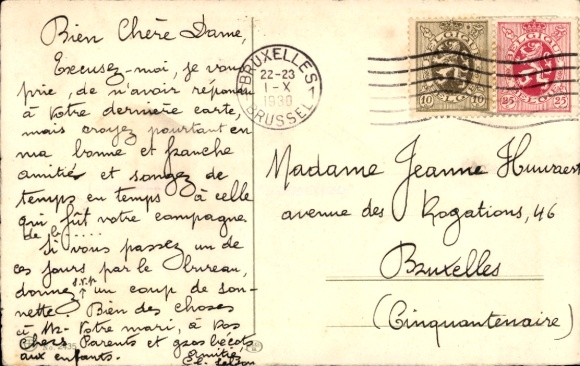 Bien Chère Dame,
Excusez-moi, je vous
prie, de n'avoir répondu
à votre dernière carte,
mais croyez pourtant en
ma bonne et franche
amitié et songez de
temps en temps à celle
qui fût votre compagne
de
Si vous passez un de
ces jours par le bureau,
donnez s.v.p. un coup de son-
nette. Bien des choses
à Mr votre mari, à vos
Chers Parents et gros bécots
aux enfants.
Amitié,
BRUXELLES 1
22-23
1-X
1930
BRUSSEL 1
BELGIQUE
10 10
BELGIË
BELGIQUE
25 25
BELGIË
Madame Jeanne
avenue des Rogations, 46
Bruxelles
(Cinquantenaire)